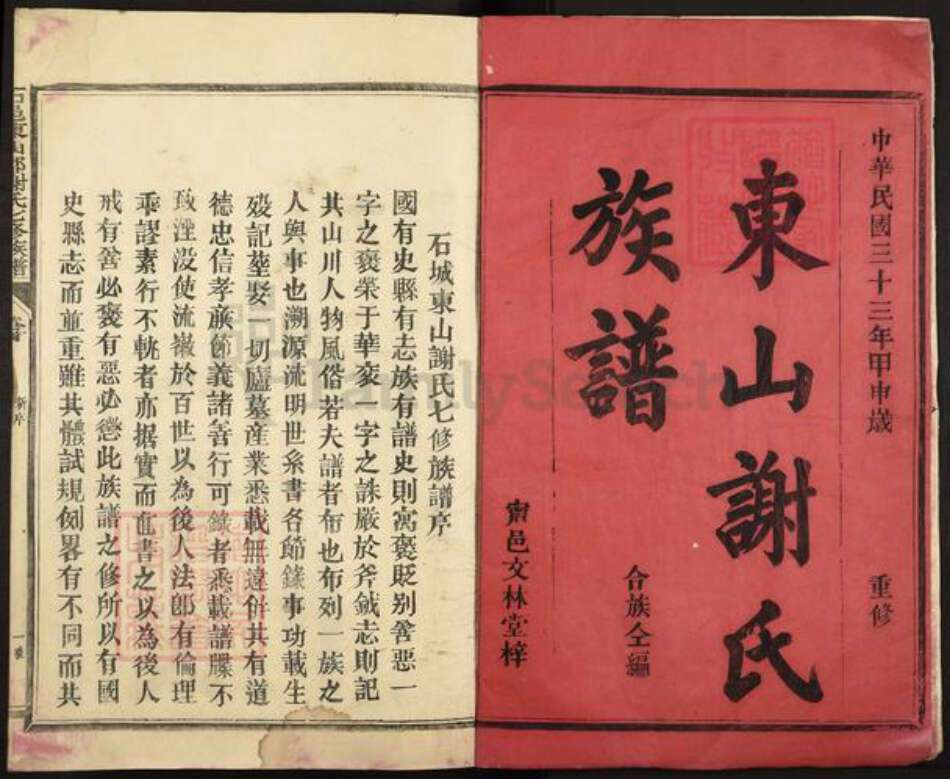 中華民國三十三年甲申歲 重修
東山謝氏
族譜
合族仝編
甯邑文林堂梓
石城東山謝氏七修族譜序
國有史縣有志族有譜史則寓褒貶別善惡一
字之褒榮于華衮一字之誅嚴於斧鉞志則記
其山川人物風俗若夫譜者布也布列一族之
人與事也溯源流明世系書各節錄事功載生
歿記塟娶一切廬墓產業悉載無違併其有道
德忠信孝義節義諸善行可錄者悉載譜牒不
致湮没使流徽於百世以為後人法卽有倫理
乖謬素行不軌者亦据實而直書之以為後人
戒有善必褒有惡必懲此族譜之修所以有國
史縣志而並重雖其體試規例畧有不同而其
謝氏七修族譜
FamilySearch